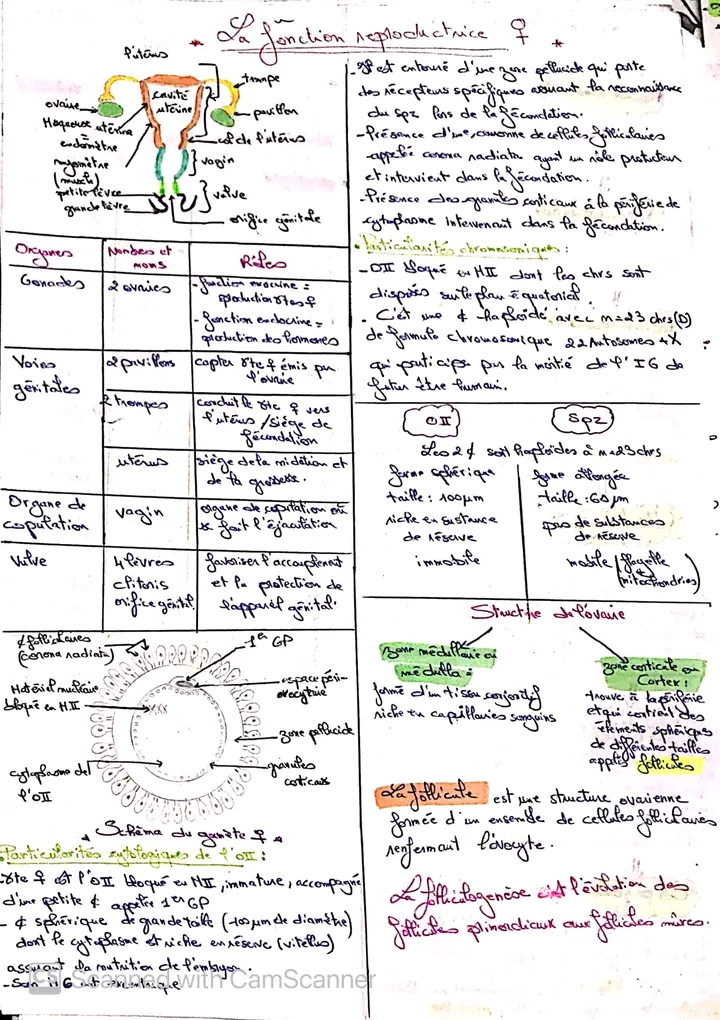 * La fonction reproductrice ♀ *
l'utérus
trompe
cavité
utérine
ovaire
pavillon
col de l'utérus
endomètre
myomètre
(muscle)
vagin
petite lèvre
grande lèvre
vulve
orifice génitale
Organes
Nombres et
noms
Rôles
Gonades
2 ovaires
- fonction exocrine =
production gtes ♀
- fonction endocrine =
production des hormones
Voies
génitales
2 pavillons
capter gte ♀ émis par
l'ovaire
2 trompes
conduit le gte ♀ vers
l'utérus / siège de
fécondation
utérus
siège de la nidation et
de la grossesse.
Organe de
copulation
vagin
organe de copulation où
se fait l'éjaculation
Vulve
4 lèvres
clitoris
orifice génital.
favoriser l'accouplement
et la protection de
l'appareil génital.
¢ folliculaires
(corona radiata)
1er GP
Matériel nucléaire
bloqué en MII
espace péri-
ovocytaire
zone pellucide
granules
corticaux
cytoplasme de
l'OII
* Schéma du gamète ♀ *
Particularités cytologiques de l'OII :
- gte ♀ est l'OII bloqué en MII, immature, accompagné
d'une petite ¢ appelée 1er GP
- ¢ sphérique de grande taille (~100 µm de diamètre)
dont le cytoplasme est riche en réserve (vitellus)
assurant la nutrition de l'embryon.
- Son
- Il est entouré d'une zone pellucide qui porte
des récepteurs spécifiques assurant la reconnaissance
du spz lors de la fécondation.
- Présence d'une couronne de cellules folliculaires
appelée corona radiata ayant un rôle protecteur
et intervient dans la fécondation.
- Présence des granules corticaux à la périférie de
cytoplasme intervenant dans la fécondation.
Particularités chromosomiques :
- OII bloqué en MII dont les chrs sont
disposés sur le plan équatorial.
. C'est une ¢ haploïde avec n=23 chrs (D)
de formule chromosomique 22 Autosomes + X
qui participe par la moitié de l'IG de
futur être humain.
OII
Spz
Les 2 ¢ sont haploïdes à n=23 chrs
forme sphérique
taille : 100 µm
riche en sustance
de réserve
immobile
forme allongée
taille : 60 µm
pas de substances
de réserve
mobile (flagelle
+
mitochondries)
Structure de l'ovaire
zone médullaire ou
médulla :
formé d'un tissu conjonctif
riche en capillaires sanguins
zone corticale ou
Cortex :
trouve à la périférie
et qui contient des
éléments sphériques
de différentes tailles
appelés follicules
La follicule est une structure ovarienne
formée d'un ensemble de cellules folliculaires
renfermant l'ovocyte.
La folliculogenèse est l'évolution des
follicules primordiaux aux follicules mûres.
CS Scanned with CamScanner